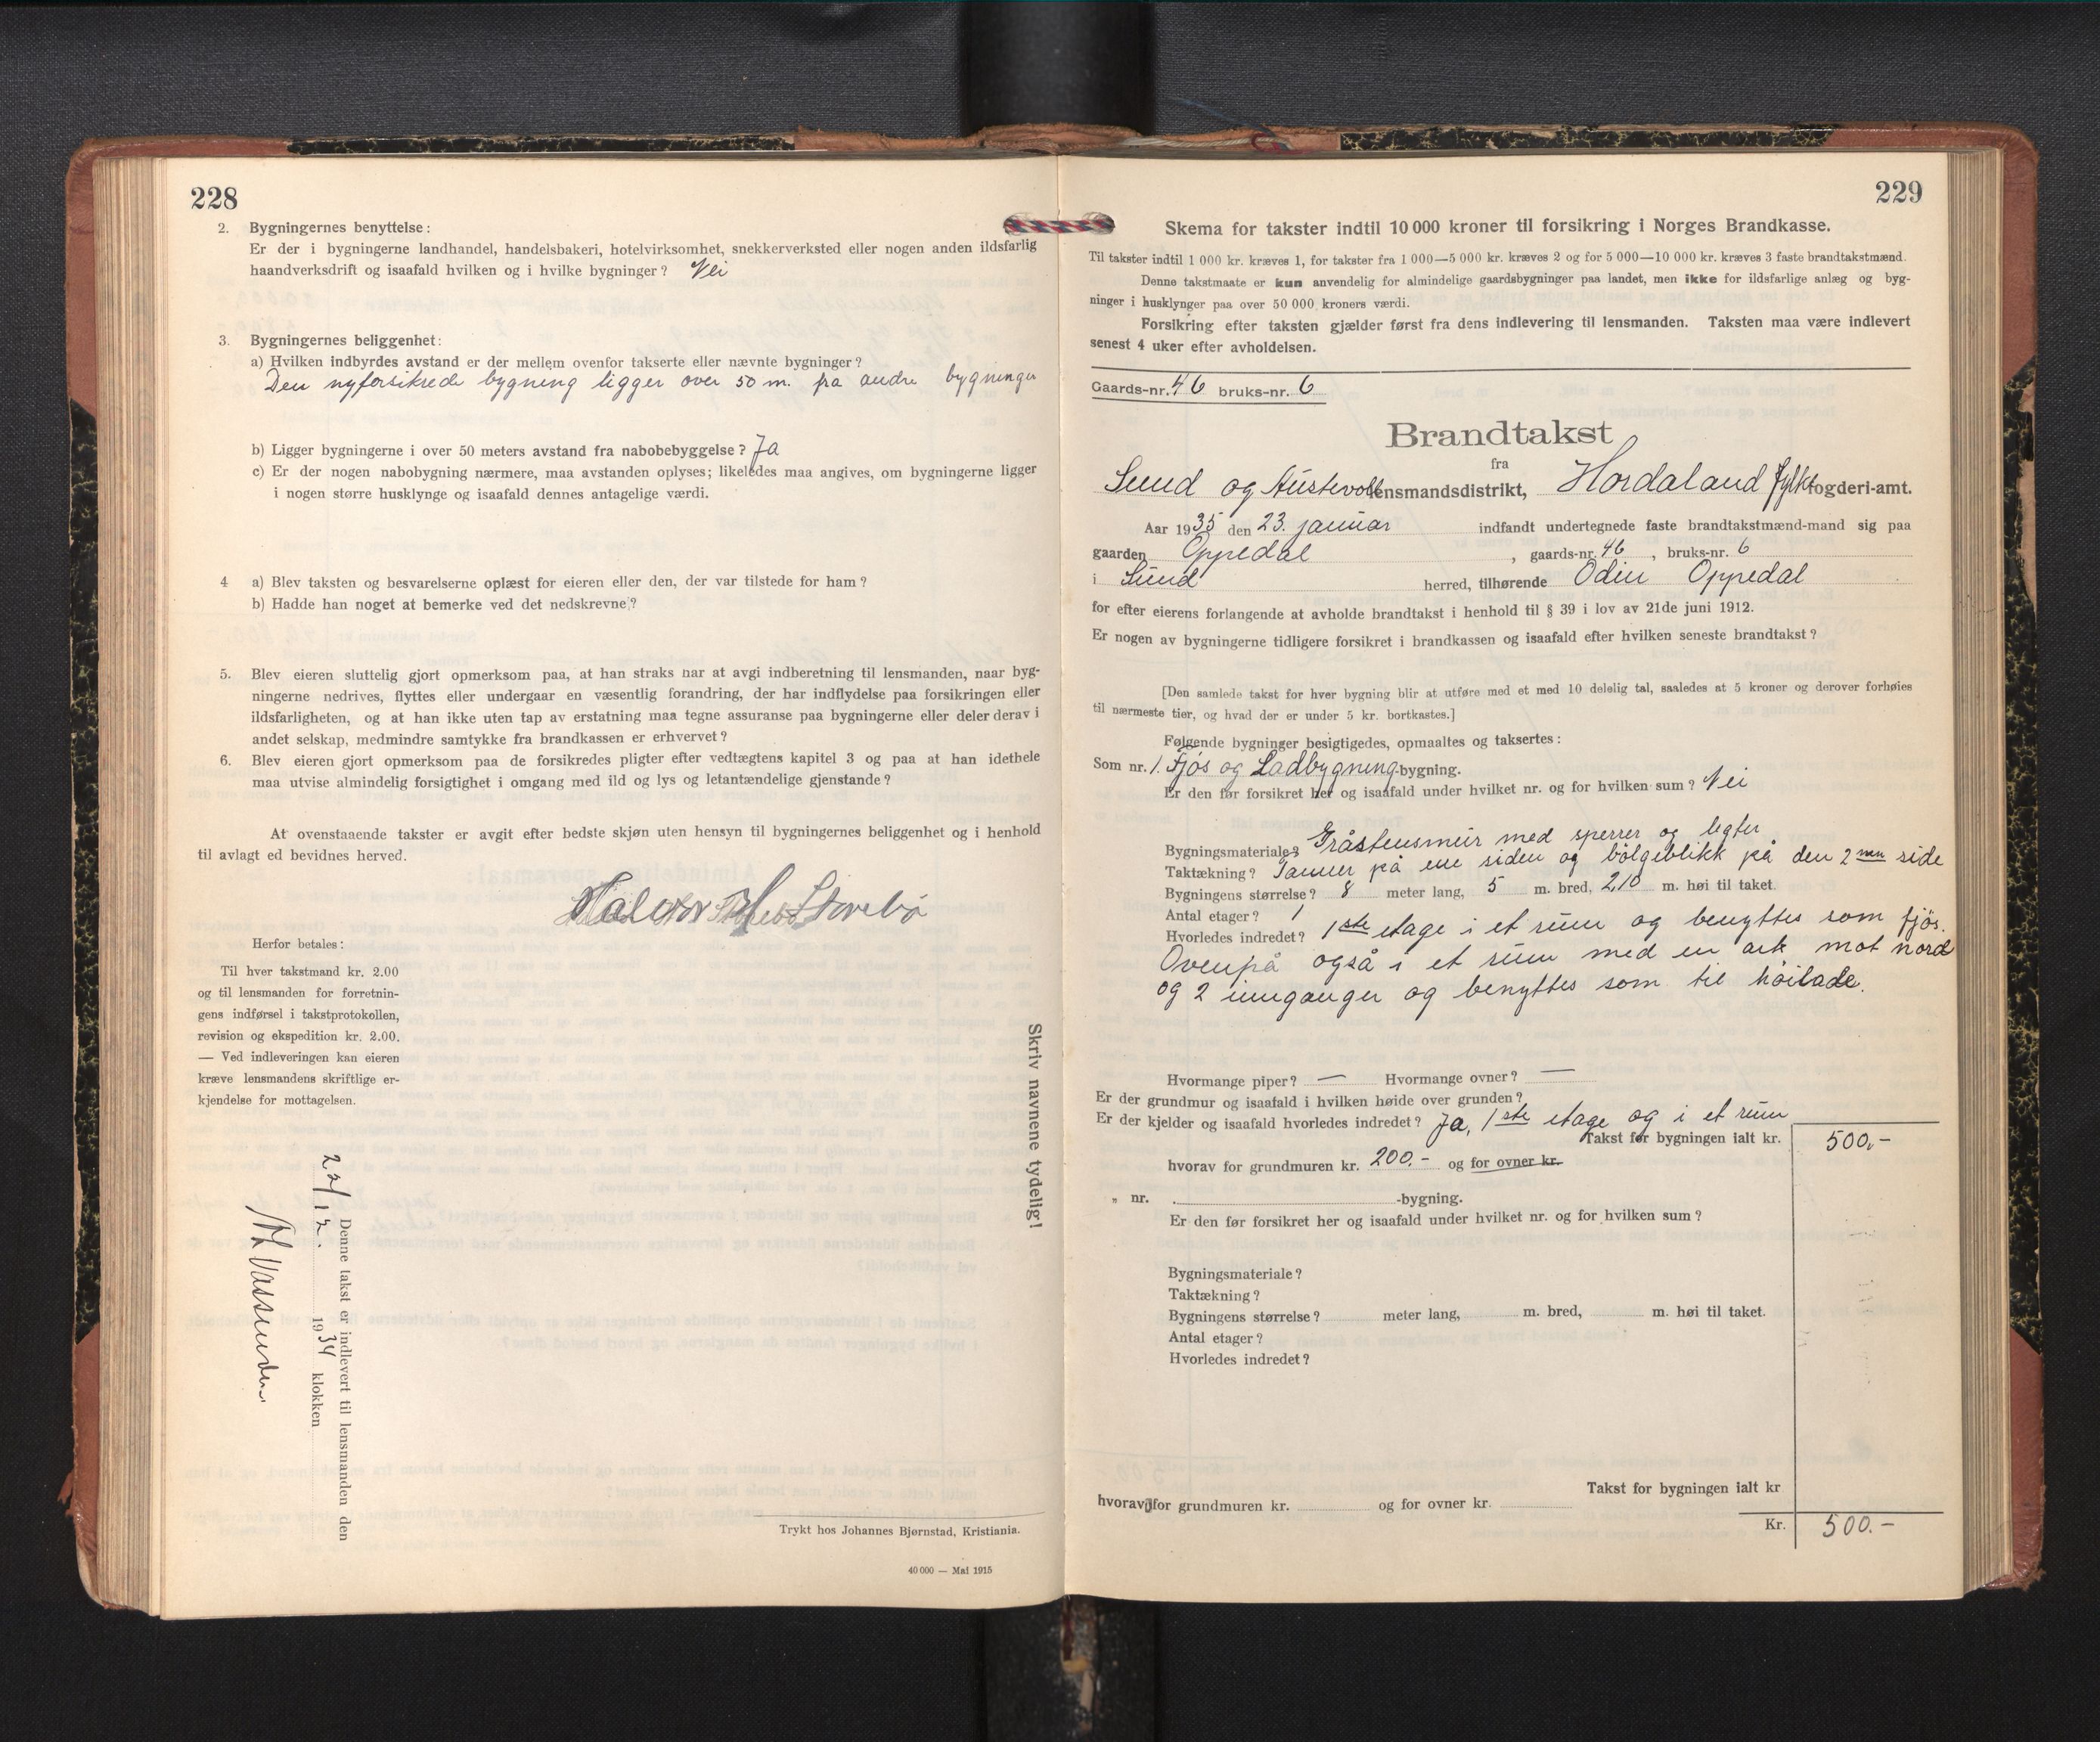 228
2. Bygningernes benyttelse:
Er der i bygningerne landhandel, handelsbakeri, hotelvirksomhet, snekkerverksted eller nogen anden ildsfarlig
haandverksdrift og isaafald hvilken og i hvilke bygninger? Nei
3. Bygningernes beliggenhet:
a) Hvilken indbyrdes avstand er der mellem ovenfor takserte eller nævnte bygninger?
Den nyforsikrede bygning ligger over 50 m. fra andre bygninger
b) Ligger bygningerne i over 50 meters avstand fra nabobebyggelse? Ja
c) Er der nogen nabobygning nærmere, maa avstanden oplyses; likeledes maa angives, om bygningerne ligger
i nogen større husklynge og isaafald dennes antagelige værdi.
4 a) Blev taksten og besvarelserne oplæst for eieren eller den, der var tilstede for ham?
b) Hadde han noget at bemerke ved det nedskrevne?
5. Blev eieren sluttelig gjort opmerksom paa, at han straks har at avgi indberetning til lensmanden, naar byg-
ningerne nedrives, flyttes eller undergaar en væsentlig forandring, der har indflydelse paa forsikringen eller
ildsfarligheten, og at han ikke uten tap av erstatning maa tegne assuranse paa bygningerne eller deler derav i
andet selskap, medmindre samtykke fra brandkassen er erhvervet?
6. Blev eieren gjort opmerksom paa de forsikredes pligter efter vedtægtens kapitel 3 og paa at han idethele
maa utvise almindelig forsigtighet i omgang med ild og lys og letantændelige gjenstande?
At ovenstaaende takster er avgit efter bedste skjøn uten hensyn til bygningernes beliggenhet og i henhold
til avlagt ed bevidnes herved.
Halvor H. Storebø
Herfor betales:
Til hver takstmand kr. 2.00
og til lensmanden for forretnin-
gens indførsel i takstprotokollen,
revision og ekspedition kr. 2.00.
— Ved indleveringen kan eieren
kræve lensmandens skriftlige er-
kjendelse for mottagelsen.
Skriv navnene tydelig!
Denne takst er indlevert til lensmanden den
22/12. 1934 klokken
Trykt hos Johannes Bjørnstad, Kristiania.
40 000 — Mai 1915
229
Skema for takster indtil 10 000 kroner til forsikring i Norges Brandkasse.
Til takster indtil 1 000 kr. kræves 1, for takster fra 1 000—5 000 kr. kræves 2 og for 5 000—10 000 kr. kræves 3 faste brandtakstmænd.
Denne takstmaate er kun anvendelig for almindelige gaardsbygninger paa landet, men ikke for ildsfarlige anlæg og byg-
ninger i husklynger paa over 50 000 kroners værdi.
Forsikring efter taksten gjælder først fra dens indlevering til lensmanden. Taksten maa være indlevert
senest 4 uker efter avholdelsen.
Gaards-nr. 46 bruks-nr. 6
Brandtakst
fra
Sund og Austevoll lensmandsdistrikt, Hordaland fylke fogderi-amt.
Aar 1935 den 23. januar indfandt undertegnede faste brandtakstmænd-mand sig paa
gaarden Oppedal, gaards-nr. 46, bruks-nr. 6
i Sund herred, tilhørende Odin Oppedal
for efter eierens forlangende at avholde brandtakst i henhold til § 39 i lov av 21de juni 1912.
Er nogen av bygningerne tidligere forsikret i brandkassen og isaafald efter hvilken seneste brandtakst?
[Den samlede takst for hver bygning blir at utføre med et med 10 delelig tal, saaledes at 5 kroner og derover forhøies
til nærmeste tier, og hvad der er under 5 kr. bortkastes.]
Følgende bygninger besigtigedes, opmaaltes og taksertes:
Som nr. 1. Fjös og Ladbygning-bygning.
Er den før forsikret her og isaafald under hvilket nr. og for hvilken sum? Nei
Bygningsmateriale? Gråstensmur med sperrer og legter
Taktækning? Panner på ene siden og bölgeblikk på den 2nen side
Bygningens størrelse? 8 meter lang, 5 m. bred, 2,10 m. høi til taket.
Antal etager? 1
Hvorledes indredet? 1ste etage i et rum og benyttes som fjös.
Ovenpå også i et rum med en ark mot nord
og 2 innganger og benyttes som til höilade.
Hvormange piper? — Hvormange ovner? —
Er der grundmur og isaafald i hvilken høide over grunden?
Er der kjelder og isaafald hvorledes indredet? Ja, 1ste etage og i et rum
Takst for bygningen ialt kr. 500,-
hvorav for grundmuren kr. 200.- og for ovner kr.
„ nr. -bygning.
Er den før forsikret her og isaafald under hvilket nr. og for hvilken sum?
Bygningsmateriale?
Taktækning?
Bygningens størrelse? meter lang, m. bred, m. høi til taket.
Antal etager?
Hvorledes indredet?
Takst for bygningen ialt kr
hvorav for grundmuren kr. og for ovner kr.
Kr. 500.-